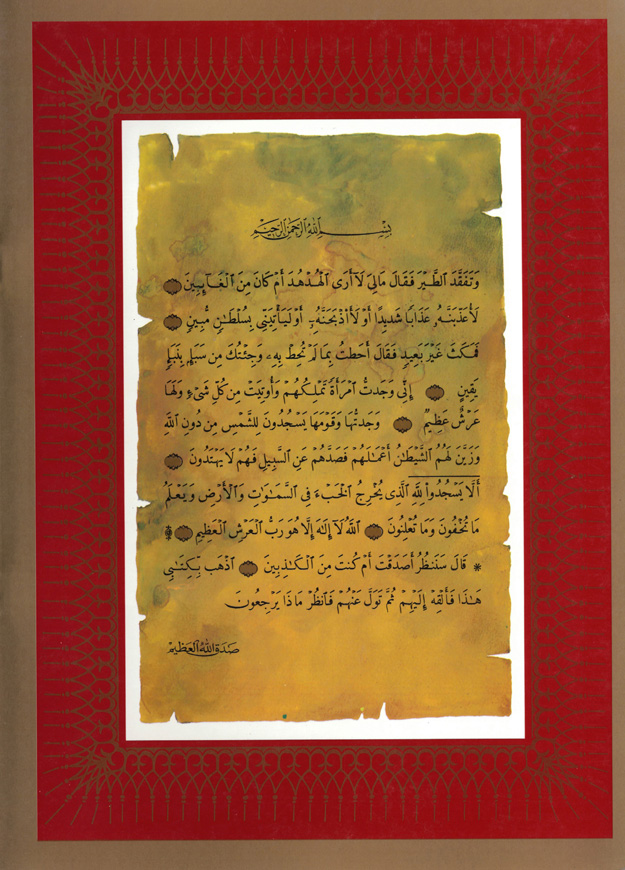 بِسْمِ اللَّهِ الرَّحْمَٰنِ الرَّحِيمِ
وَتَفَقَّدَ ٱلطَّيْرَ فَقَالَ مَالِيَ لَآ أَرَى ٱلْهُدْهُدَ أَمْ كَانَ مِنَ ٱلْغَآئِبِينَ
لَأُعَذِّبَنَّهُۥ عَذَابًا شَدِيدًا أَوْ لَأَاْذْبَحَنَّهُۥٓ أَوْ لَيَأْتِيَنِّي بِسُلْطَٰنٍ مُّبِينٍ
فَمَكَثَ غَيْرَ بَعِيدٍ فَقَالَ أَحَطتُ بِمَا لَمْ تُحِطْ بِهِۦ وَجِئْتُكَ مِن سَبَإٍۭ بِنَبَإٍ
يَقِينٍ إِنِّى وَجَدتُّ ٱمْرَأَةً تَمْلِكُهُمْ وَأُوتِيَتْ مِن كُلِّ شَىْءٍ وَلَهَا
عَرْشٌ عَظِيمٌ وَجَدتُّهَا وَقَوْمَهَا يَسْجُدُونَ لِلشَّمْسِ مِن دُونِ ٱللَّهِ
وَزَيَّنَ لَهُمُ ٱلشَّيْطَٰنُ أَعْمَٰلَهُمْ فَصَدَّهُمْ عَنِ ٱلسَّبِيلِ فَهُمْ لَا يَهْتَدُونَ
أَلَّا يَسْجُدُوا۟ لِلَّهِ ٱلَّذِى يُخْرِجُ ٱلْخَبْءَ فِى ٱلسَّمَٰوَٰتِ وَٱلْأَرْضِ وَيَعْلَمُ
مَا تُخْفُونَ وَمَا تُعْلِنُونَ ٱللَّهُ لَآ إِلَٰهَ إِلَّا هُوَ رَبُّ ٱلْعَرْشِ ٱلْعَظِيمِ
* قَالَ سَنَنظُرُ أَصَدَقْتَ أَمْ كُنتَ مِنَ ٱلْكَٰذِبِينَ ٱذْهَب بِّكِتَٰبِى
هَٰذَا فَأَلْقِهْ إِلَيْهِمْ ثُمَّ تَوَلَّ عَنْهُمْ فَٱنظُرْ مَاذَا يَرْجِعُونَ
صَدَقَ اللَّهُ العَظِيم